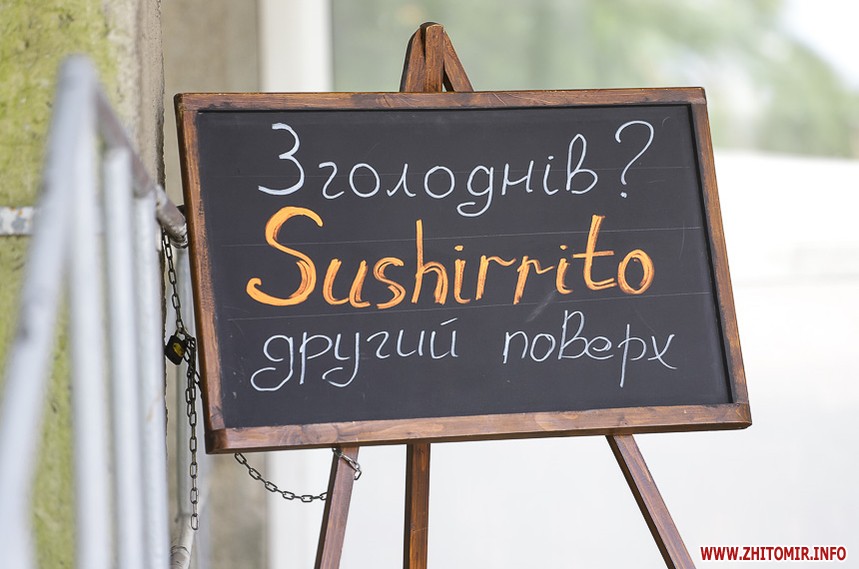 Зголоднів?
Sushirrito
другий поверх
WWW.ZHITOMIR.INFO